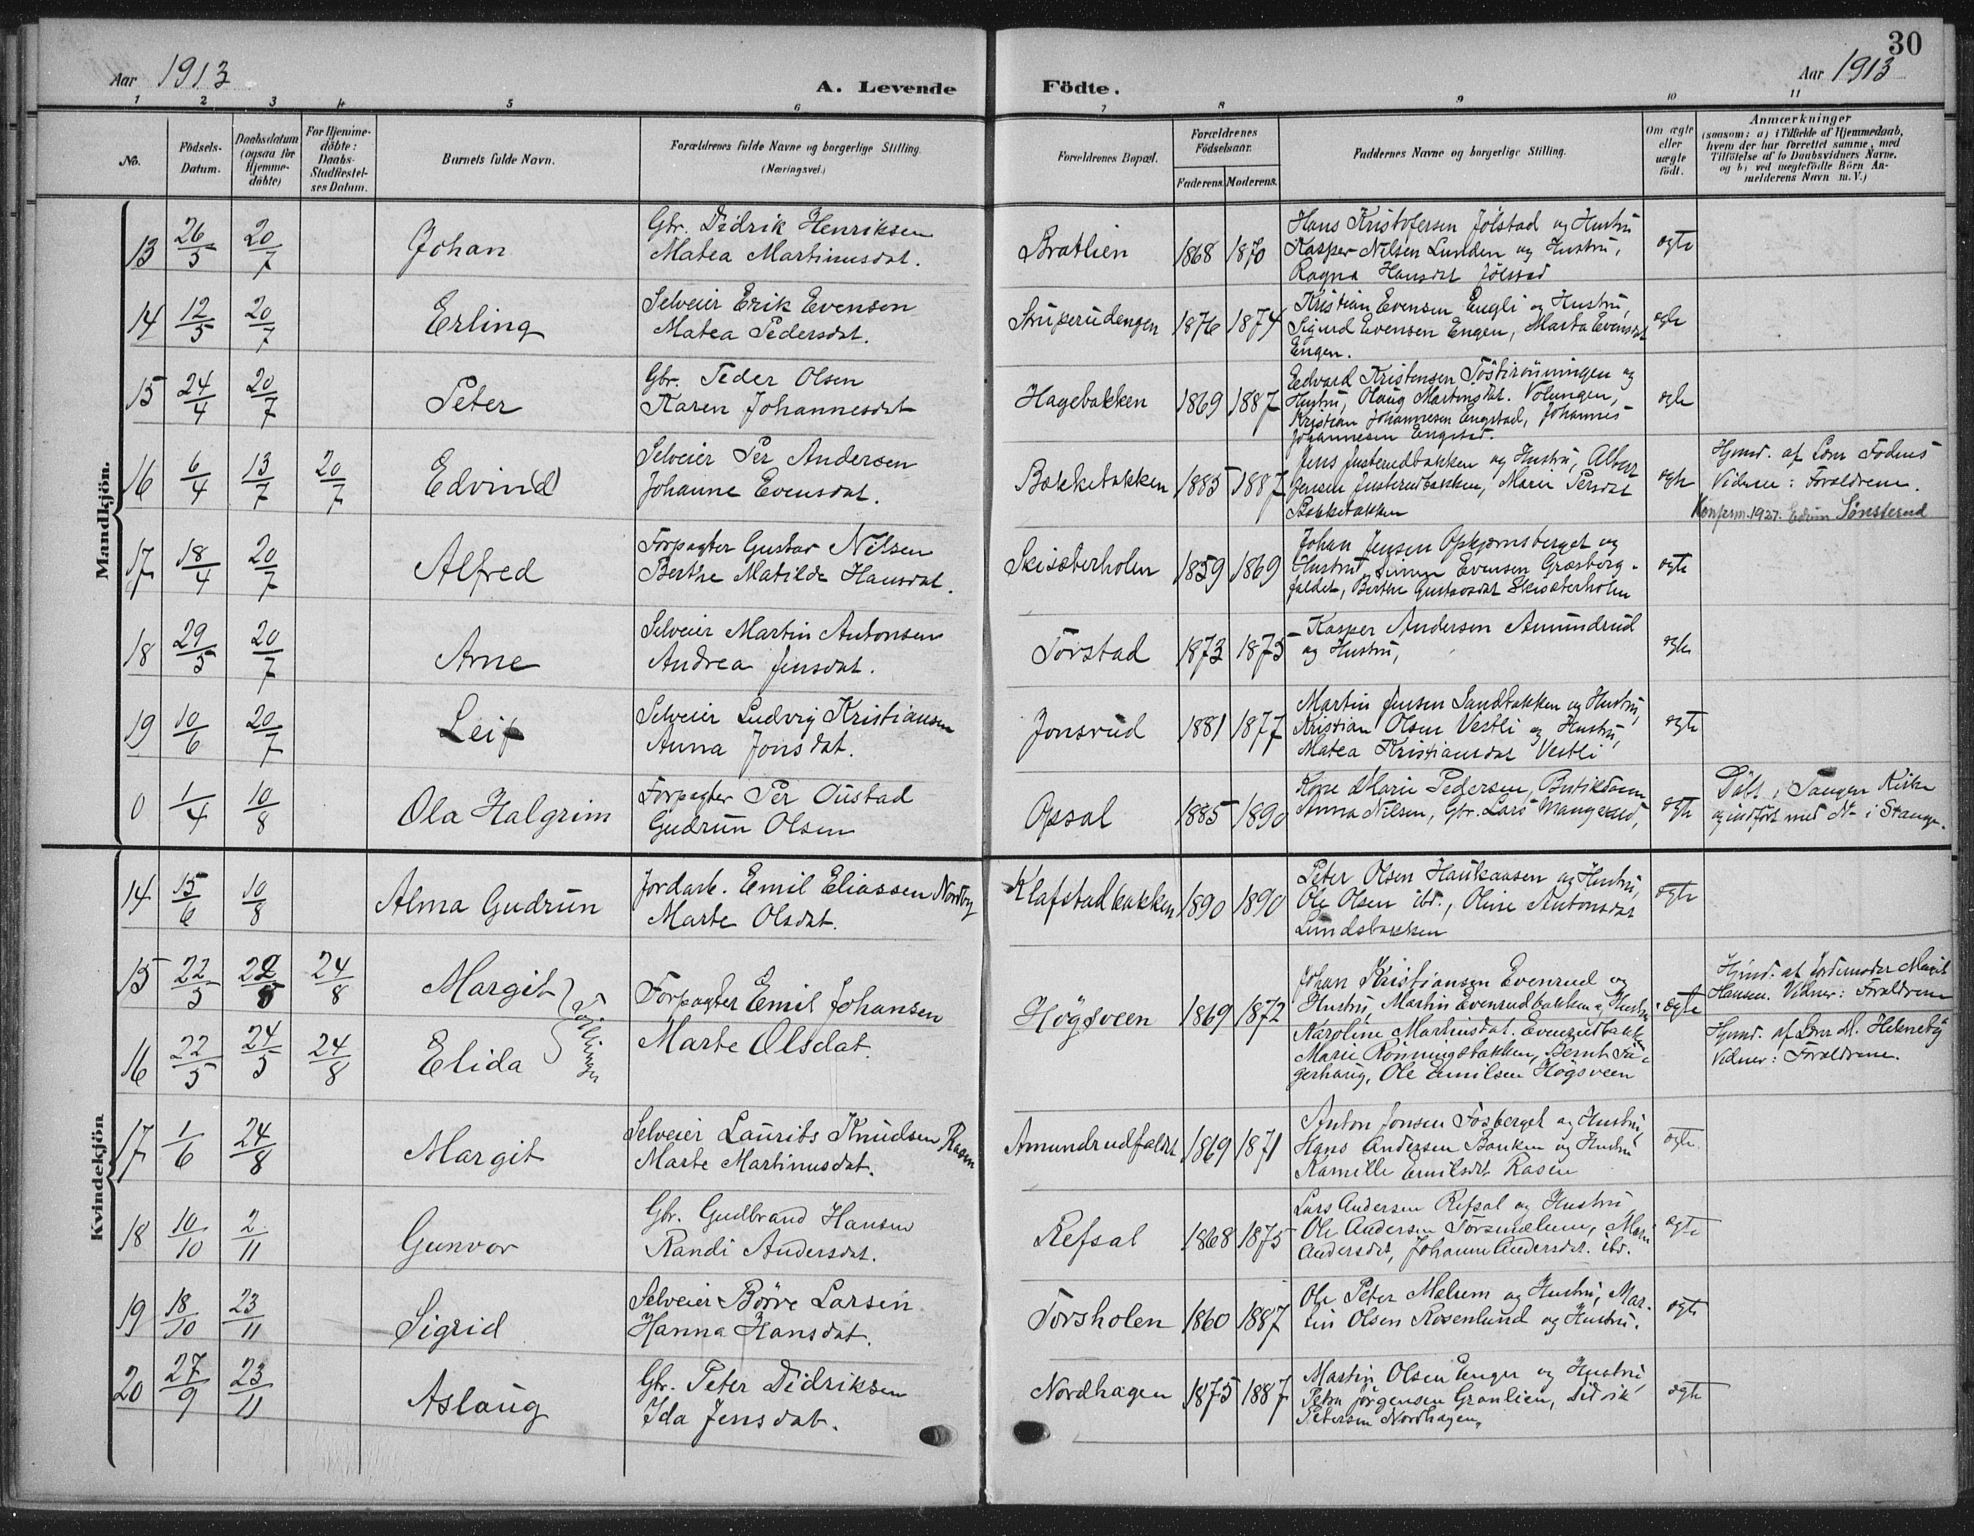 30
Aar 1913
A. Levende Födte.
Aar 1913
1 2 3 4 5 6 7 8 9 10 11
No.
Födsels-Datum.
Daabsdatum (ogsaa for Hjemme-döbte)
For Hjemme-döbte: Daabs-Stadfæstel-ses Datum.
Barnets fulde Navn.
Forældrenes fulde Navne og borgerlige Stilling.
(Næringsvei.)
Forældrenes Bopæl.
Forældrenes Födselsaar.
Faderens. Moderens.
Faddernes Navne og borgerlige Stilling.
Om ægte eller uægte födt.
Anmærkninger
(saasom: a) i Tilfælde af Hjemmedaab,
hvem der har forrettet samme, med
Tilföielse af to Daabsvidners Navne,
og b) ved uægtefödte Börn An-
melderens Navn m. V.)
Mandkjön.
13 26/5 20/7 Johan
Gbr. Didrik Henriksen
Matea Martinusdat.
Bratlien 1868 1870
Hans Kristofersen Jölstad og Hustru
Kasper Nilsen Lunden og Hustru,
Ragna Hansdat Jölstad
ægte
14 12/5 20/7 Erling
Selveier Erik Evensen
Matea Pedersdat.
Struperudengen 1876 1874
Kristian Evensen Engli og Hustru,
Sigurd Evensen Engen, Marta Evensdat
Engen.
ægte
15 24/4 20/7 Peter
Gbr. Peder Olsen
Karen Johannesdat
Hagebakken 1869 1887
Edvard Kristensen Töstirönningen og
Hustru, Olaug Martinsdat. Volungen,
Kristian Johannesen Engstad, Johannes
Johannesen Engstad.
ægte
16 6/4 13/7 20/7 Edvin(d)
Selveier Per Andersen
Johanne Evensdat.
Bækkebakken 1885 1887
Jens Justerudbakken og Hustru, Albert
Jensen Justerudbakken, Marie Persdat
Bækkebakken
ægte
Hjmd. af Lær Fodnes
Vidner: Forældrene.
Konfirm. 1927. Edvin Sönsterud
17 18/4 20/7 Alfred
Forpagter Gustav Nilsen
Berthe Matilde Hansdat.
Skisæterholen 1859 1869
Johan Jensen Opkjærnsberget og
Hustru Simen Evensen Græsberg-
faldet, Berthe Gustavsdat Skisæterholen
ægte
18 29/5 20/7 Arne
Selveier Martin Antonsen
Andrea Jensdat.
Torstad 1873 1875
Kasper Andersen Amundrud
og Hustru,
ægte
19 10/6 20/7 Leif
Selveier Ludvig Kristiansen
Anna Jonsdat.
Jonsrud 1881 1877
Martin Jensen Sandbakken og Hustru,
Kristian Olsen Vestli og Hustru,
Matea Kristiansdat Vestli
ægte
0 1/4 10/8 Ola Halgrim
Forpagter Per Oustad
Gudrun Olsen
Opsal 1885 1890
Kone Marie Pedersen, Butikdame
Anna Nilsen, Gbr. Lars Mangerud,
ægte
Döbt i Tangen Kirke
og indfört med N- i Stange.
Kvindekjön
14 15/6 10/8 Alma Gudrun
Jordarb. Emil Eliassen Nordby
Marte Olsdat.
Klafstadbakken 1890 1890
Peter Olsen Haukaasen og Hustru,
Ole Olsen ibd., Oline Antonsdat
Lundsbakken
ægte
15 22/5 22/5 24/8 Margit
Tvillinger
Forpagter Emil Johansen
Marte Olsdat.
Högsveen 1869 1872
Johan Kristiansen Evenrud og
Hustru, Martin Evenrudbakken & Hustru
Karoline Martinsdat. Evenrudbakken
Marie Rönningsbakken, Bernt Fa-
gerhaug, Ole Emilsen Högsveen
ægte
Hjmd. af Jordemoder Marit
Hansen. Vidner: Forældrene
16 22/5 24/5 24/8 Elida
Hjmd. af Lær M. Helseby
Vidner: Forældrene.
17 1/6 24/8 Margit
Selveier Laurits Knudsen Rasen
Marte Martinusdat.
Amundrudfaldet 1869 1871
Anton Jonsen Fosberget og Hustru,
Hans Andersen Bakken og Hustru
Kamille Emilsdat Rasen
ægte
18 10/10 2/11 Gunvor
Gbr. Gudbrand Hansen
Randi Andersdat.
Refsal 1868 1875
Lars Andersen Refsal og Hustru
Ole Andersen Torsmælum, Mari
Andersdat, Johanne Andersdat. ibd.
ægte
19 18/10 23/11 Sigrid
Selveier Börre Larsen
Hanna Hansdat.
Torsholen 1860 1887
Ole Peter Melum og Hustru, Mar-
tin Olsen Rosenlund og Hustru.
ægte
20 27/9 23/11 Aslaug
Gbr. Peter Didriksen
Ida Jensdat.
Nordhagen 1875 1887
Martin Olsen Enger og Hustru,
Petra Jörgensen Granlien, Didrik
Petersen Nordhagen,
ægte